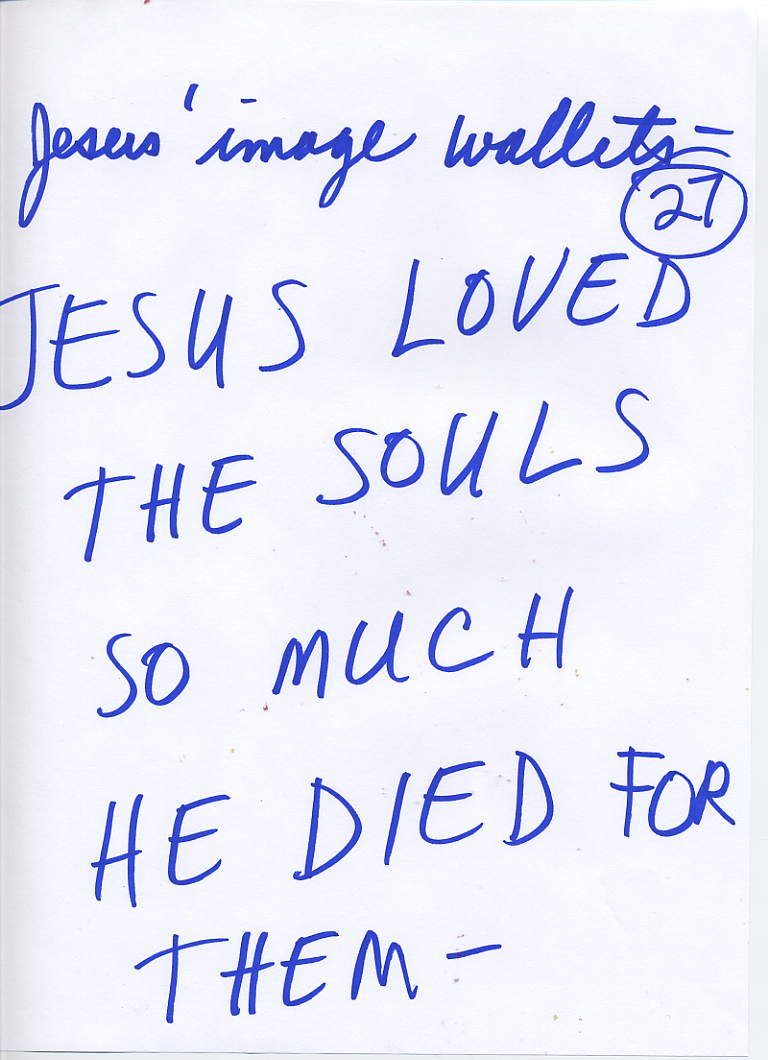 Jesus' image wallets-
27
JESUS LOVED
THE SOULS
SO MUCH
HE DIED FOR
THEM-